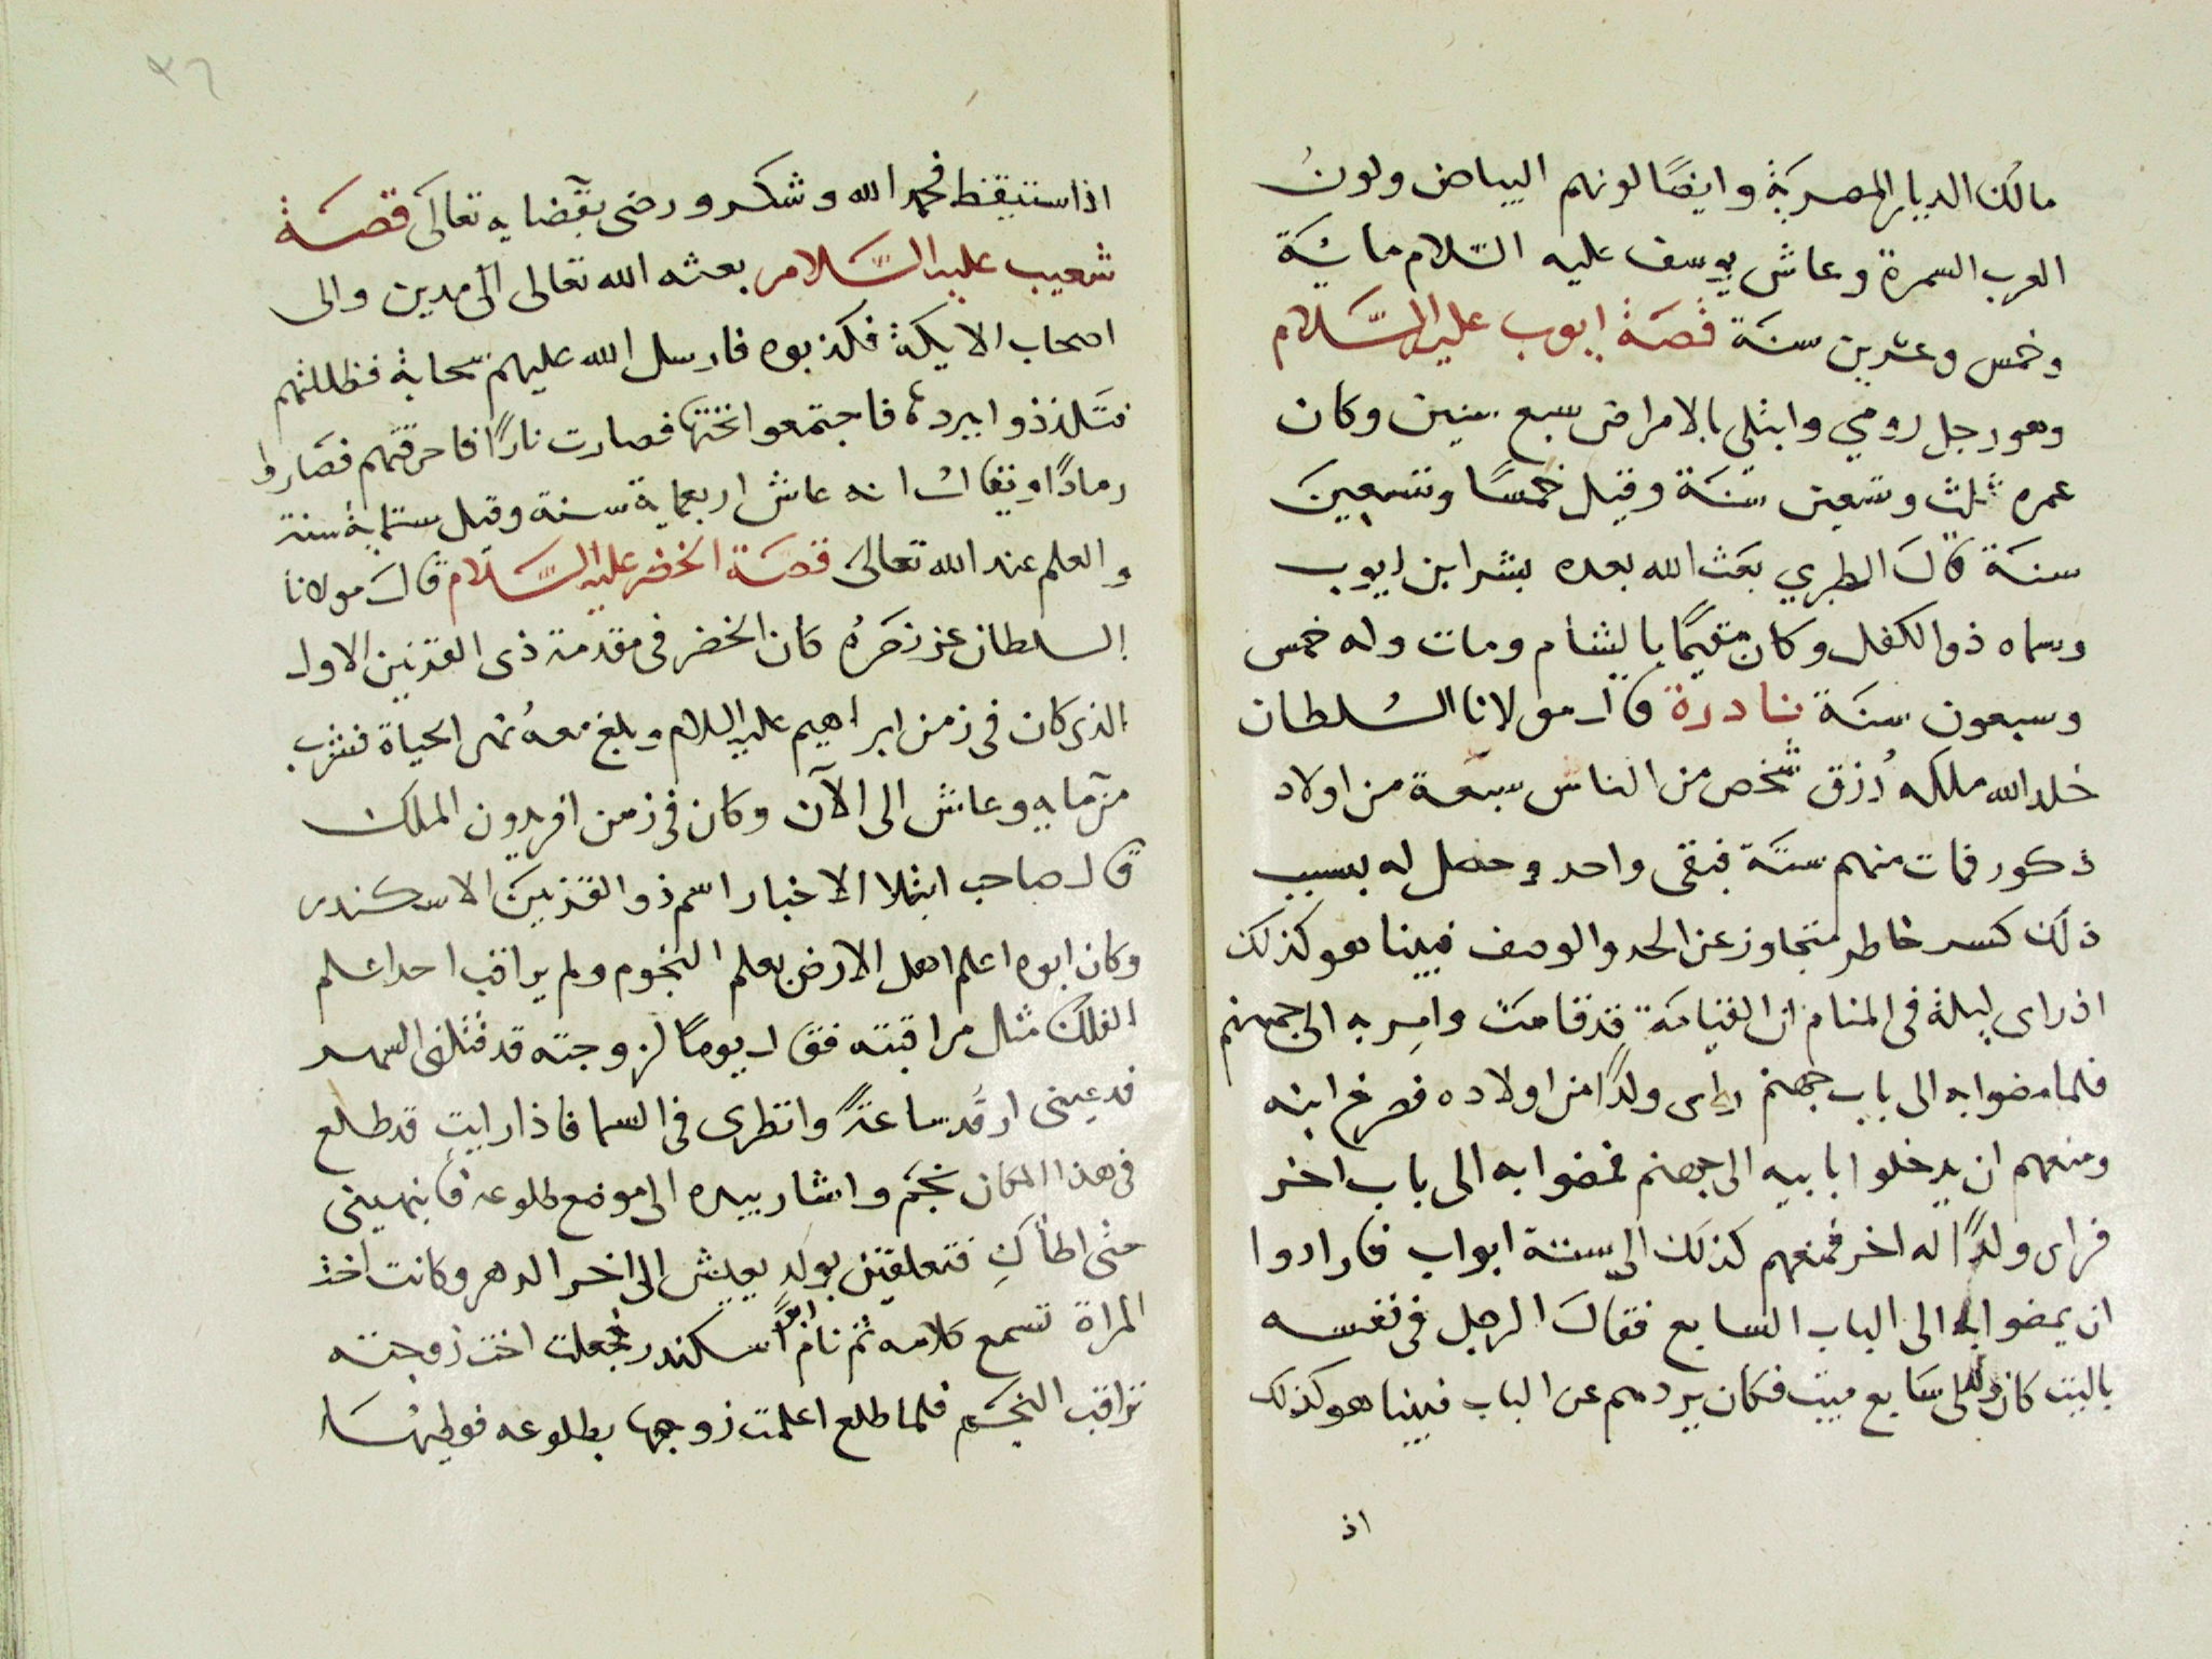 مالك الديار المصرية وايضًا لونهم البياض ولون
العرب السمرة وعاش يوسف عليه السلام ماية
وخمس وعشرين سنة قصة ايوب عليه السلام
وهو رجل رومي وابتلى بالامراض سبع سنين وكان
عمره ثلث وتسعين سنة وقيل خمسًا وتسعين
سنة قال الطبري بعث الله بعده بشر ابن ايوب
وسماه ذو الكفل وكان مقيمًا بالشام ومات وله خمس
وسبعون سنة نادرة قال مولانا السلطان
خلد الله ملكه رُزق شخص من الناس سبعة من اولاد
ذكور فمات منهم ستة فبقى واحد وحصل له بسبب
ذلك كسر خاطر متجاوز عن الحد والوصف فبينا هو كذلك
اذ راى ليلة فى المنام ان القيامة قد قامت وامِر به الى جهنم
فلما مضوا به الى باب جهنم راى ولدًا من اولاده فصرخ ابنه
ومنعهم ان يدخلوا بابيه الى جهنم فمضوا به الى باب اخر
فراى ولدًا له اخر فمنعهم كذلك الى ستة ابواب فارادوا
ان يمضوا به الى الباب السابع فقال الرجل فى نفسه
ياليت كان ولدى سابع ميت فكان يردهم عن الباب فبينا هو كذلك
اذ
٣٦
اذا ستيقظ فحمد الله وشكر ورضى بقضايه تعالى قصة
شعيب عليه السلام بعثه الله تعالى الى مدين والى
اصحاب الايكة فكذبوه فارسل الله عليهم سحابة فظللتهم
فتلذذوا ببرده فاجتمعوا تحتها فصارت نارًا فاحرقتهم فصاروا
رمادًا ويقال انه عاش اربعماية سنة وقيل ستماية سنة
والعلم عند الله تعالى قصة الخضر عليه السلام قال مولانا
السلطان عز نصرُه كان الخضر فى مقدمة ذى القرنين الاول
الذى كان فى زمن ابراهيم عليه السلام وبلغ معه نهر الحياة فشرب
من مايه وعاش الى الآن وكان فى زمن افريدون الملك
قال صاحب ابتلا الاخبار اسم ذو القرنين الاسكندر
وكان ابوه اعلم اهل الارض بعلم النجوم ولم يراقب احد علم
الفلك مثل مراقبته فقال يومًا لزوجته قد قتلنى السهر
فدعينى ارقد ساعةً وانظرى فى السما فاذا رايتِ قد طلع
فى هذا المكان نجم واشار بيده الى موضع طلوعه فانبهينى
حتى اطأكِ فتعلقين بولد يعيش الى اخر الدهر وكانت اخت
المراة تسمع كلامه ثم نام ابو اسكندر فجعلت اخت زوجته
تراقب النجم فلما طلع اعلمت زوجها بطلوعه فوطيها